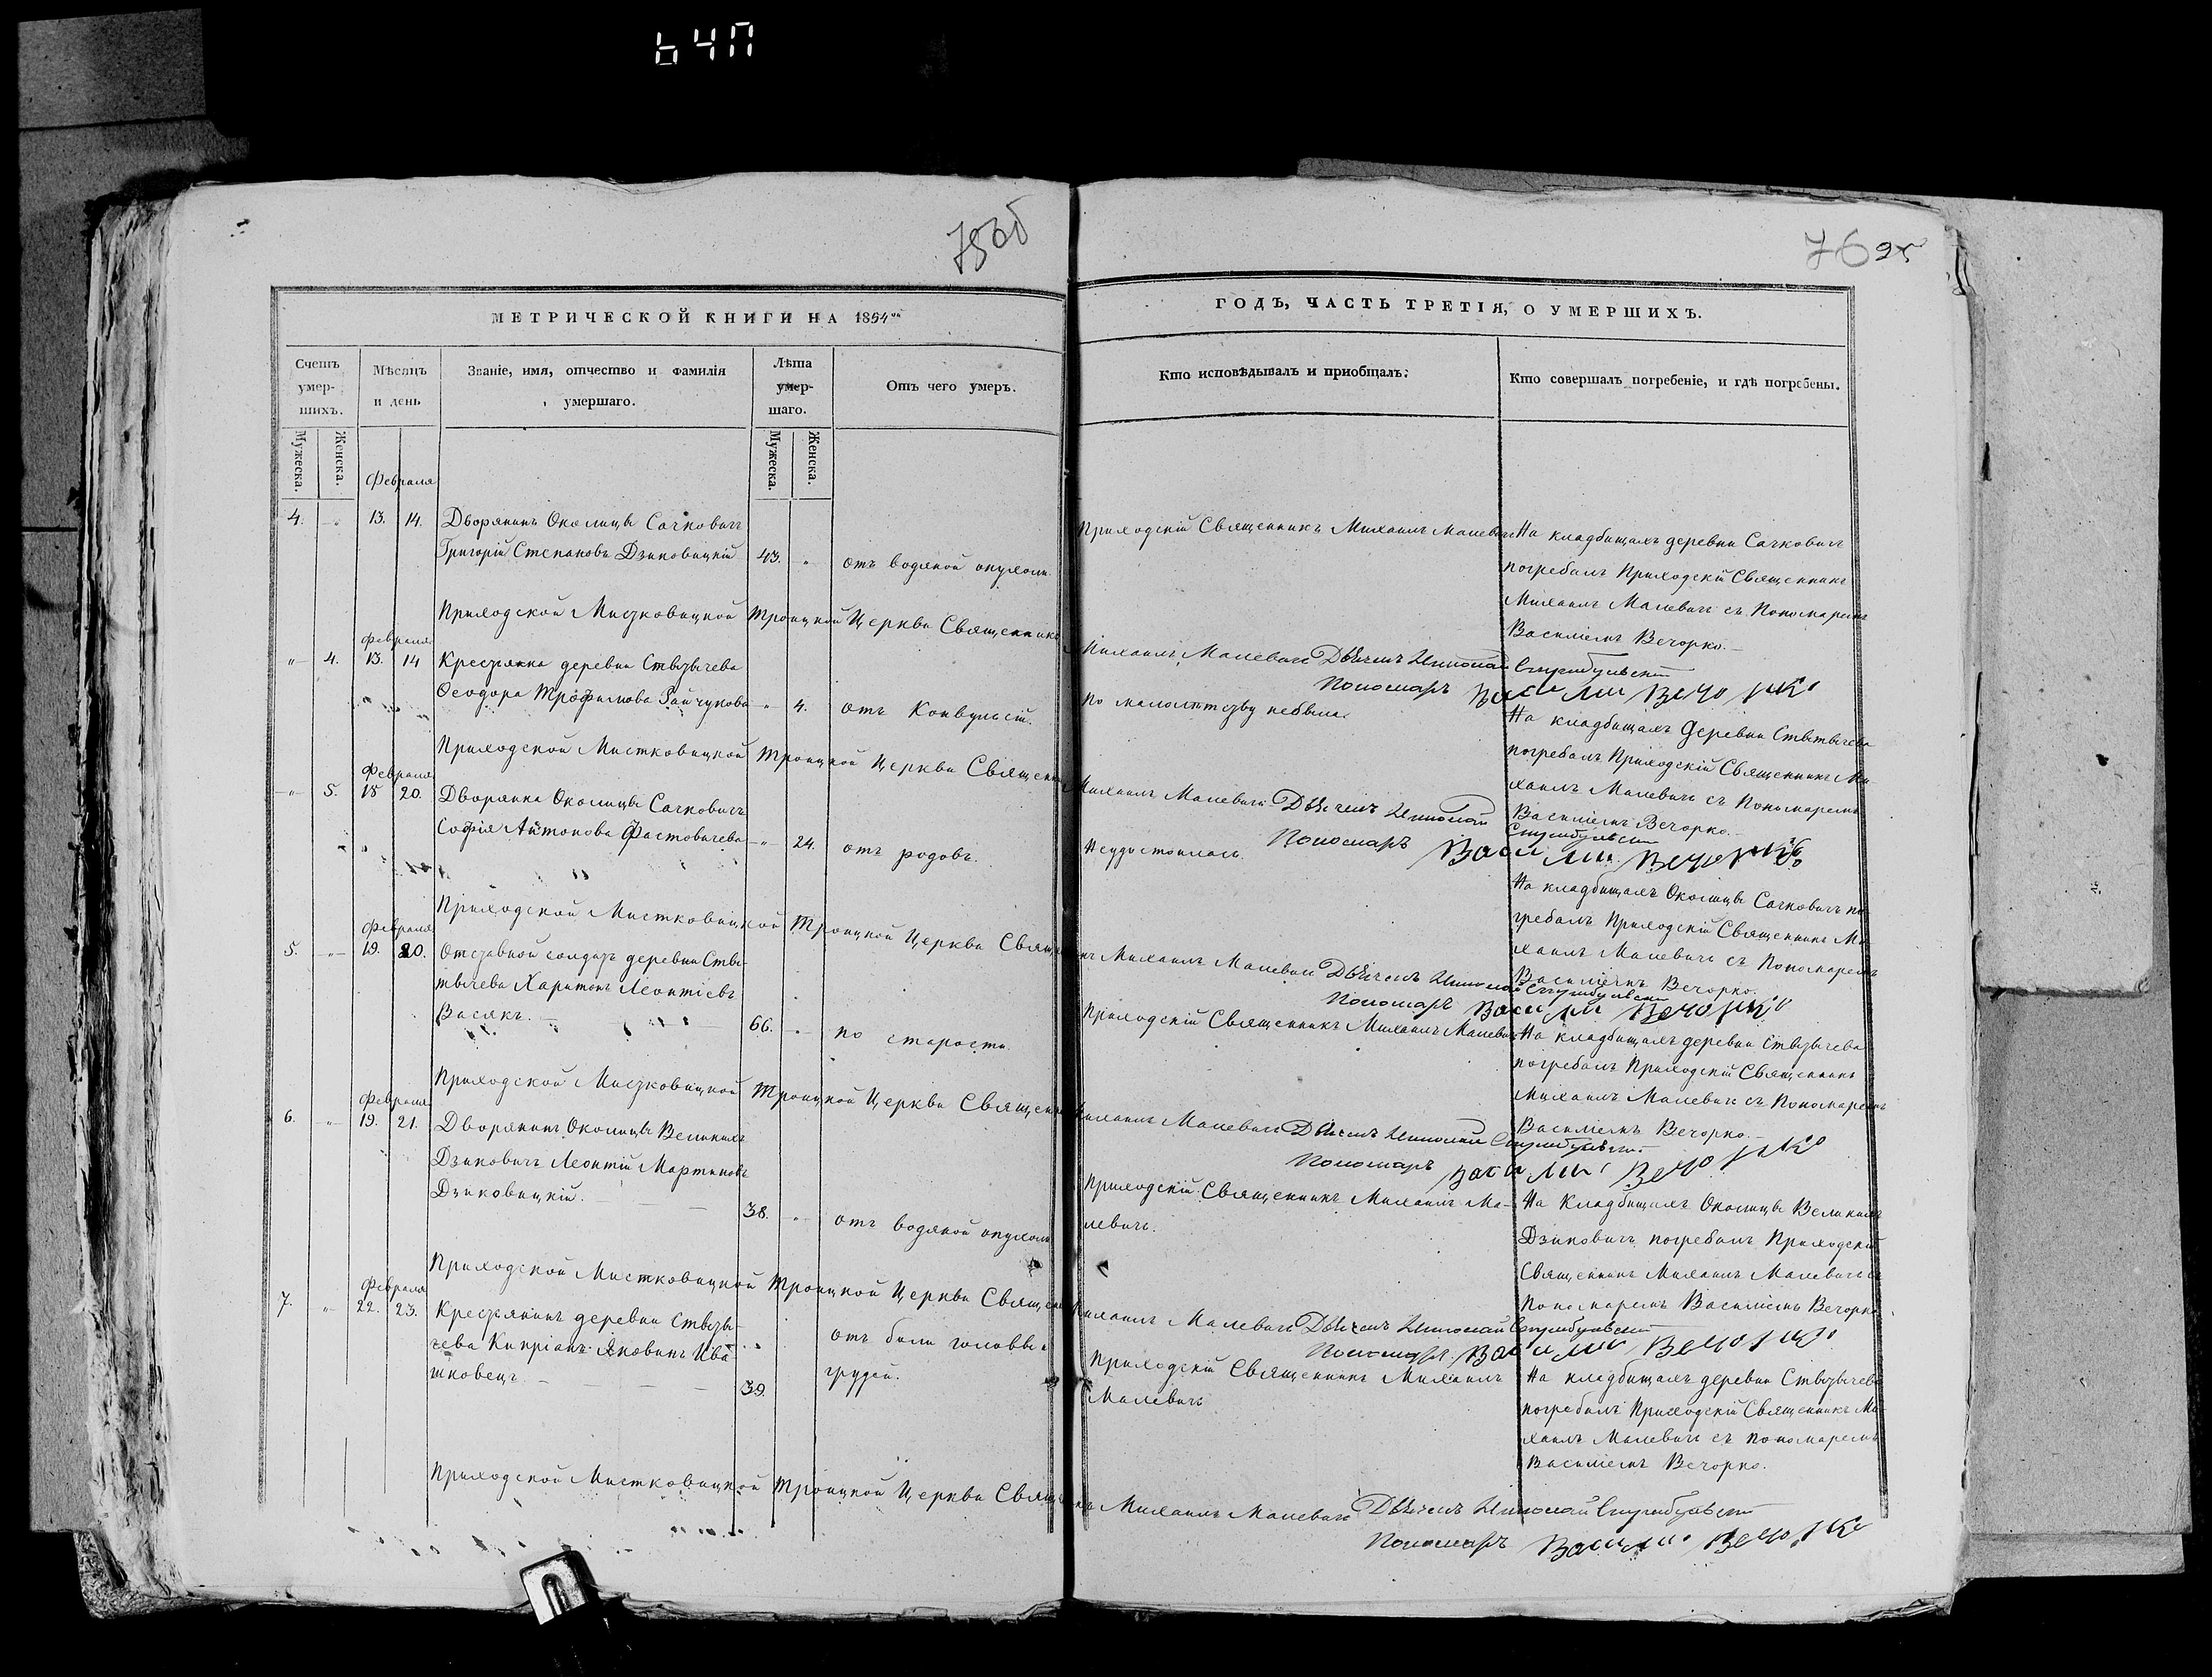 64П
75об
МЕТРИЧЕСКОЙ КНИГИ НА 1854
Счетъ умер-шихъ.
Мѣсяцъ и день
Званіе, имя, отчество и фамилія умершаго.
Лѣта умер-шаго.
Отъ чего умеръ.
Мужеска.
Женска.
Мужеска.
Женска.
Февраля
4. 13. 14. Дворянинъ Околицы Сачковичъ
Григорій Степановъ Дзиковицкій 43. " отъ водяной опухоли
Приходской Мистковицкой Троицкой Церкви Священникъ
Февраля
" 4. 13. 14 Крестянка деревни Стытычева
Ѳеодора Трофимова " 4. отъ Конвульсій.
Приходской Мистковицкой Троицкой Церкви Священникъ
Февраля
" 5. 18 20. Дворянка Околицы Сачковичъ
Софія Антонова Фастовичева " 24. отъ родовъ.
Приходской Мистковицкой Троицкой Церкви Священ
Февраля
5. " 19. 20. Отставной солдатъ деревни Сты-
тычева Харитонъ Леонтіевъ
Васякъ. 66. " по старости.
Приходской Мистковицкой Троицкой Церкви Священ
Февраля
6. " 19. 21. Дворянинъ Околицы Великихъ
Дзиковичъ Леонтій Мартиновъ
Дзиковицкій. 38. " отъ водяной опухоли
Приходской Мистковицкой Троицкой Церкви Священ
Февраля
7. " 22. 23. Крестянинъ деревни Стыты-
чева Кипріанъ Яковинъ Ива-
шковецъ 39. отъ боли головы и
грудей.
Приходской Мистковицкой Троицкой Церкви Священ
76
ГОДЪ, ЧАСТЬ ТРЕТІЯ, О УМЕРШИХЪ.
Кто исповѣдывалъ и пріобщалъ.
Кто совершалъ погребеніе, и гдѣ погребены.
Приходскій Священникъ Михаилъ Малевичъ
На кладбищахъ деревни Сачковичъ
погребалъ Приходскій Священникъ
Михаилъ Малевичъ съ Пономаремъ
Василіемъ Вечорко.
Михаилъ Малевичъ Дьячекъ Николай
Пономаръ Василий Вечорко
По малолѣтству небыла.
На кладбищахъ Деревни Стытычева
погребалъ Приходскій Священникъ Ми-
хаилъ Малевичъ съ Пономаремъ
Василіемъ Вечорко.
Михаилъ Малевичъ Дьячекъ Николай
Пономаръ Василий Вечорко
Неудостоилась
На кладбищахъ Околицы Сачковичъ по
гребалъ Приходскій Священникъ Ми
хаилъ Малевичъ съ Пономаремъ
Василіемъ Вечорко.
Михаилъ Малевичъ Дьячекъ Николай
Пономаръ Василий Вечорко
Приходскій Священникъ Михаилъ Малевичъ
На кладбищахъ деревни Стытычева
погребалъ Приходскій Священникъ
Михаилъ Малевичъ съ Пономаремъ
Василіемъ Вечорко.
Михаилъ Малевичъ Дьячекъ Николай
Пономаръ Василий Вечорко
Приходскій Священникъ Михаилъ Ма-
левичъ.
На Кладбищахъ Околицы Великихъ
Дзиковичъ погребалъ Приходскій
Священникъ Михаилъ Малевичъ съ
Пономаремъ Василіемъ Вечорко.
Михаилъ Малевичъ Дьячекъ Николай
Пономаръ Василий Вечорко
Приходскій Священникъ Михаилъ
Малевичъ
На кладбищахъ деревни Стытычева
погребалъ Приходскій Священникъ Ми
хаилъ Малевичъ съ Пономаремъ
Василіемъ Вечорко.
Михаилъ Малевичъ Дьячекъ Николай
Пономаръ Василий Вечорко